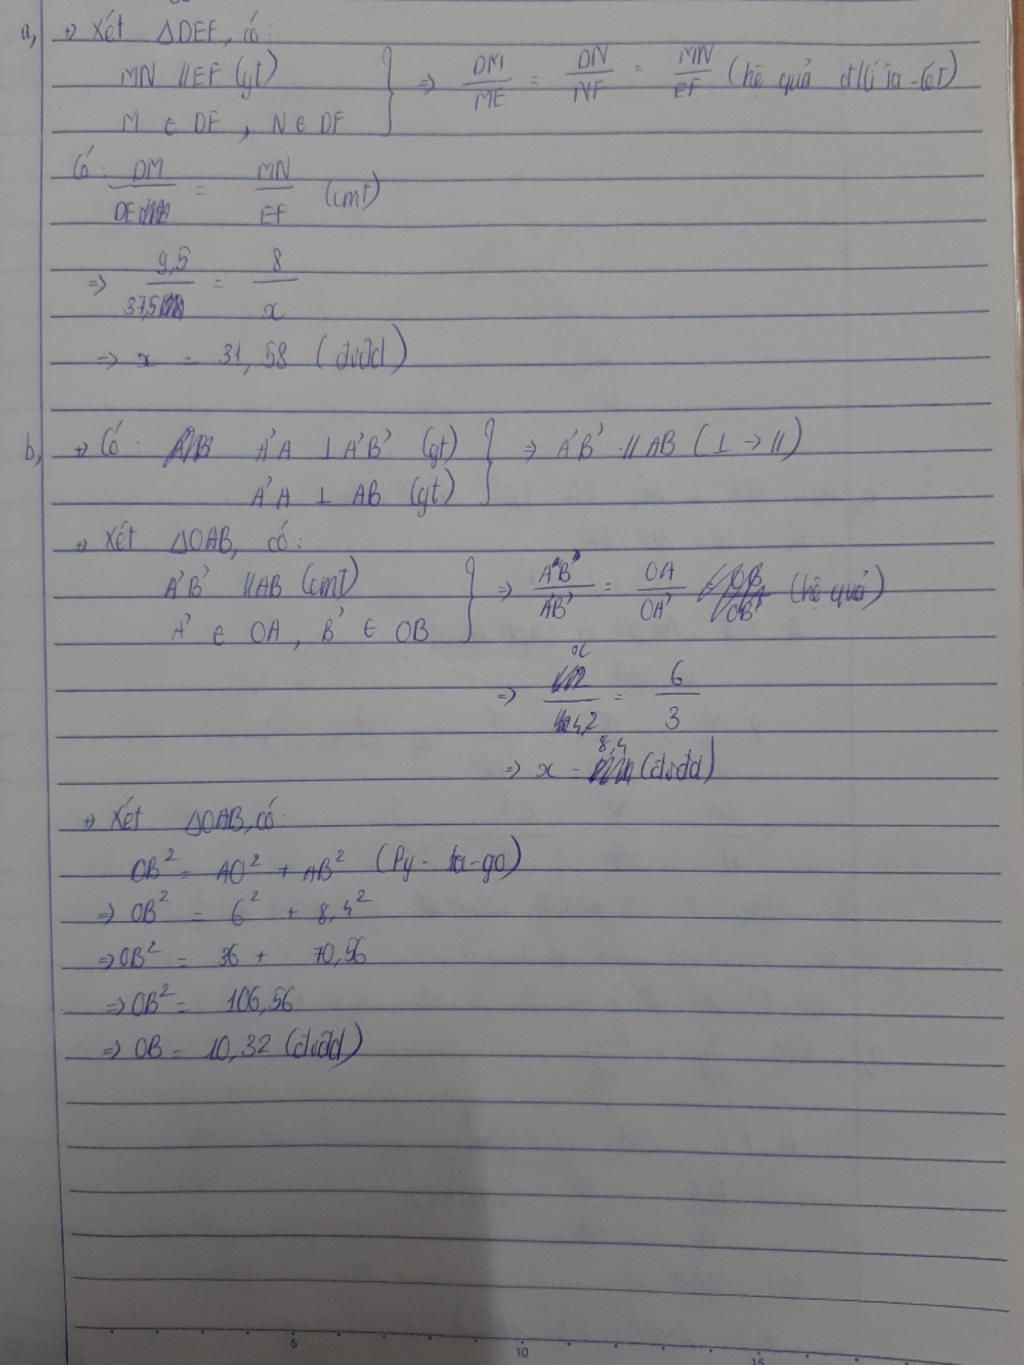 a, → Xét ΔDEF, có:
MN // EF (gt)
M ∈ DF, N ∈ DF
} ⇒ DM/ME = DN/NF = MN/EF (hệ quả đ/lí Ta-lét)
Có: DM/DE = MN/EF (cmt)
⇒ 9,5/37,5 = 8/x
⇒ x = 31,58 (đvđd)
b, → Có: A'A ⊥ A'B' (gt)
A'A ⊥ AB (gt)
} ⇒ A'B' // AB (⊥ → //)
→ Xét ΔOAB, có:
A'B' // AB (cmt)
A' ∈ OA, B' ∈ OB
} ⇒ AB/A'B' = OA/OA' (hệ quả)
⇒ x/4,2 = 6/3
⇒ x = 8,4 (đvđd)
→ Xét ΔOAB, có:
OB² = AO² + AB² (Py-ta-go)
⇒ OB² = 6² + 8,4²
⇒ OB² = 36 + 70,56
⇒ OB² = 106,56
⇒ OB = 10,32 (đvđd)
5 10 15